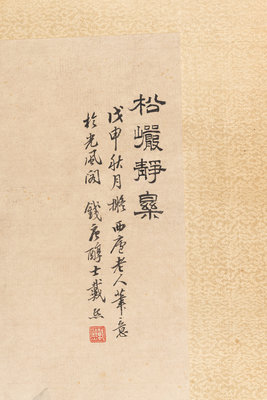 松巖靜寨
戊申秋月橅西廬老人筆意
於光風閣 錢唐醇士戴熙